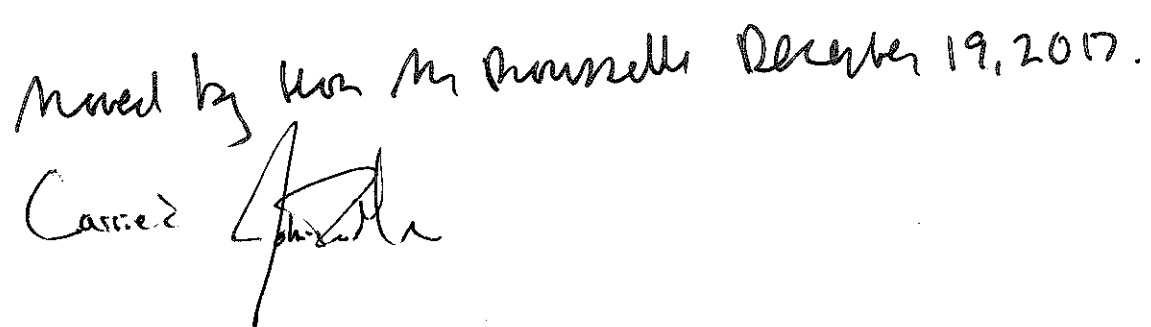 Moved by Hon Mr Rousselle December 19, 2017.
Carried